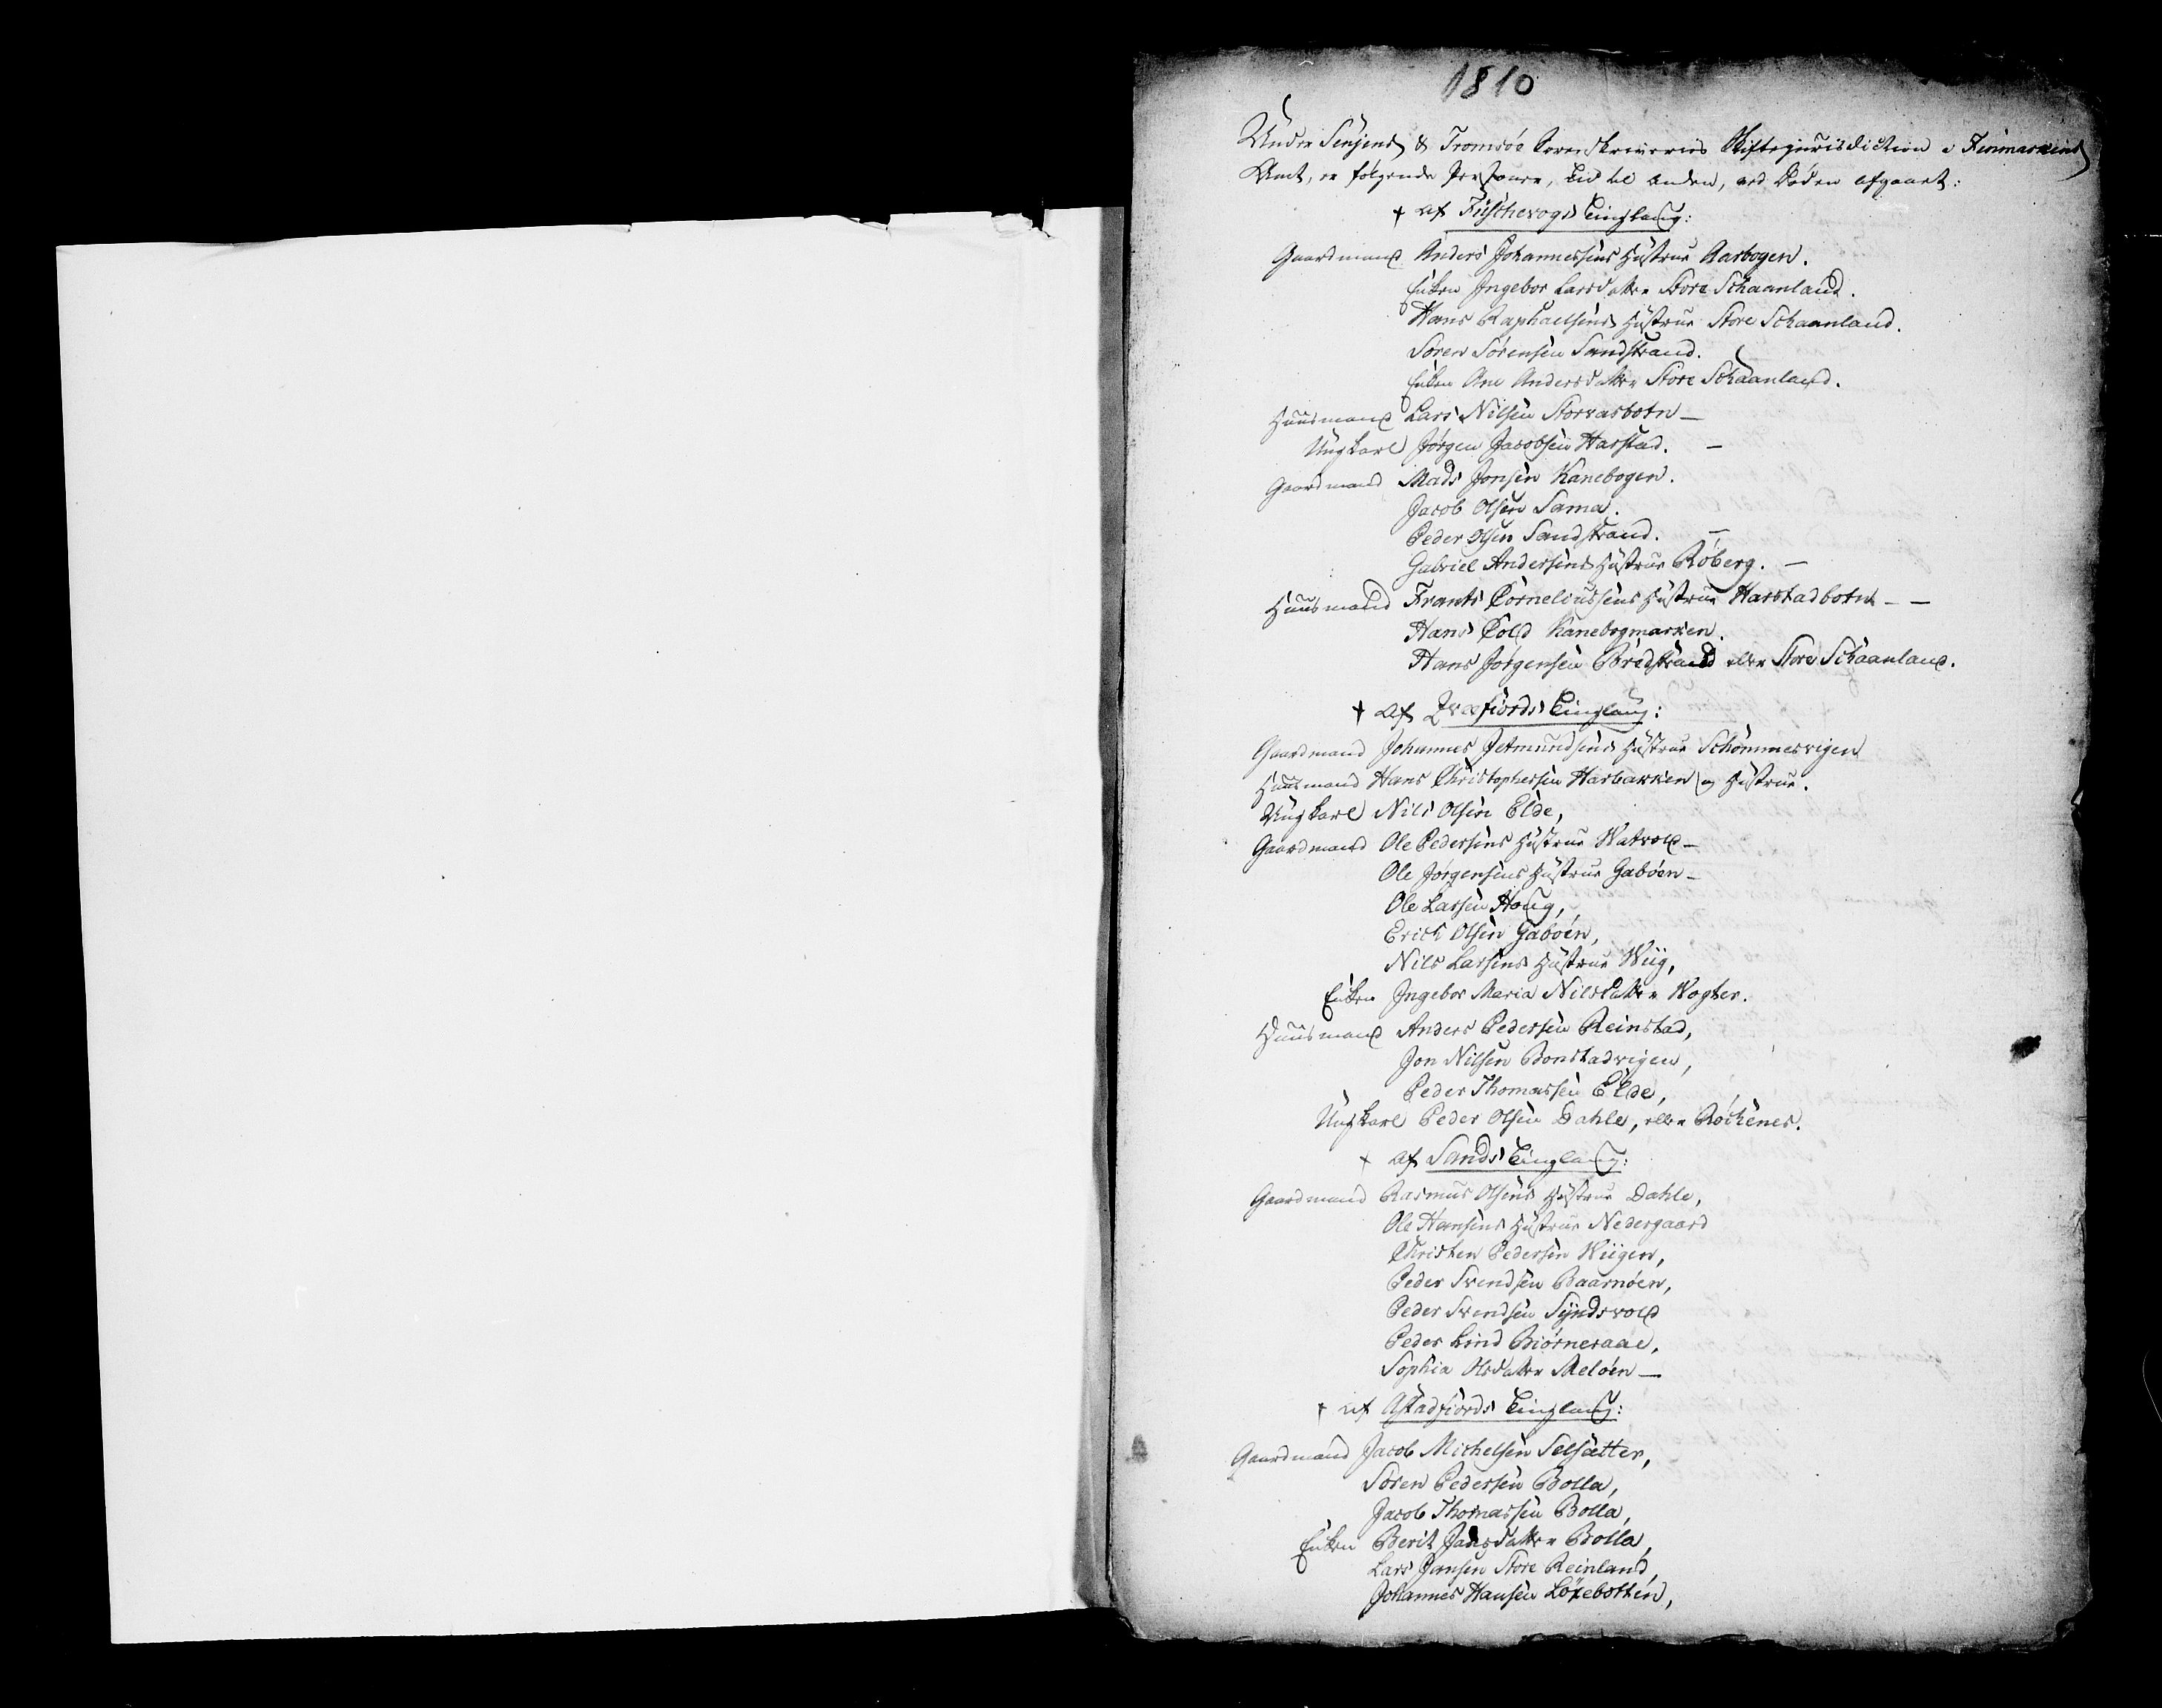 1810
Under Senjens & Tromsöe Sorenskriveries Skiftejurisdiction i Finmarkens
Amt, er følgende Personer, Tid til anden, ved Döden afgaaet:
+ af Tinglaug:
Gaardmand Anders Johannessens Hustrue Aarbogen.
Enken Ingebor Larsdatter Store Schaanland.
Hans Raphaelsens Hustrue Store Schaanland.
Sören Sörensen Sandstrand.
Enken Ane Andersdatter Store Schaanland.
Huusmand Lars Nilsen Storvasbotn —
Ungkarl Jörgen Jacobsen Harstad. —
Gaardmand Mads Jonsen Kanebogen.
Jacob Olsen Sama.
Peder Olsen Sandstrand. —
Gabriel Andersens Hustrue Röberg. —
Huusmand Frants Corneliussens Hustrue Harstadbotn — —
Hans Cold Kanebogmarken.
Hans Jörgensen eller Store Schaanland.
+ af Qvæfiords Tinglaug:
Gaardmand Johannes Jetmundsens Hustrue Schömmesvigen
Huusmand Hans Christophersen Harbakken og Hustrue.
Ungkarl Nils Olsen Elde,
Gaardmand Ole Pedersens Hustrue Watvold —
Ole Jörgensens Hustrue Gaböen —
Ole Larsen Houg,
Erich Olsen Gaböen,
Nils Larsens Hustrue Wiig,
Enken Ingebor Maria Nilsdatter Wogter.
Huusmand Anders Pedersen Reinstad,
Jon Nilsen Bonstadvigen,
Peder Thomassen Elde,
Ungkarl Peder Olsen Dahle, eller Röchenes.
+ af Sands Tinglaug:
Gaardmand Rasmus Olsens Hustrue Dahle,
Ole Hansens Hustrue Nedergaard
Christen Pedersen Wiigen,
Peder Svendsen Baarnöen,
Peder Svendsen Syndsvold
Peder Lind Biörneraae,
Sophia Olsdatter Melöen —
+ af Astadfiords Tinglaug:
Gaardmand Jacob Michelsen Selsætter,
Sören Pedersen Bolla,
Jacob Thomassen Bolla,
Enken Berit Bolla,
Lars Jansen Store Reinland,
Johannes Hansen Löxebotten,